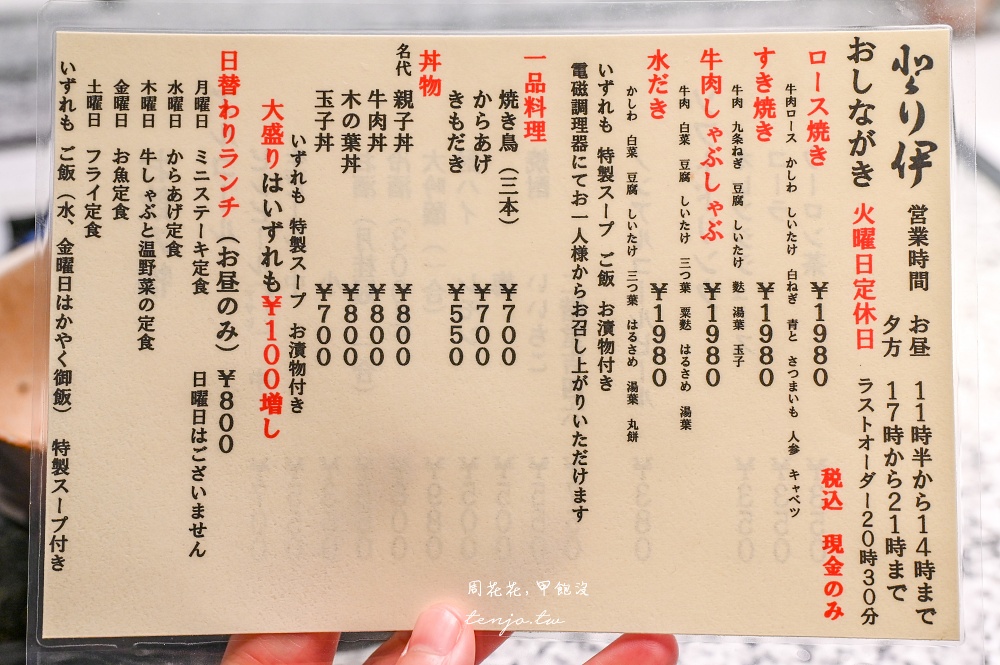 とり伊
おしながき
営業時間 お昼 11時半から14時まで
夕方 17時から21時まで
火曜日定休日 ラストオーダー20時30分
税込 現金のみ
ロース焼き ¥1980
牛肉ロース かしわ しいたけ 白ねぎ 青と さつまいも 人参 キャベツ
すき焼き ¥1980
牛肉 九条ねぎ 豆腐 しいたけ 麩 湯葉 玉子
牛肉しゃぶしゃぶ ¥1980
牛肉 白菜 豆腐 しいたけ 三つ葉 粟麩 はるさめ 湯葉
水だき ¥1980
かしわ 白菜 豆腐 しいたけ 三つ葉 はるさめ 湯葉 丸餅
いずれも 特製スープ ご飯 お漬物付き
電磁調理器にてお一人様からお召し上がりいただけます
一品料理
焼き鳥(三本) ¥700
からあげ ¥700
きもだき ¥550
丼物
名代 親子丼 ¥800
牛肉丼 ¥800
木の葉丼 ¥800
玉子丼 ¥700
いずれも 特製スープ お漬物付き
大盛りはいずれも¥100増し
日替わりランチ(お昼のみ) ¥800
月曜日 ミニステーキ定食 日曜日はございません
水曜日 からあげ定食
木曜日 牛しゃぶと温野菜の定食
金曜日 お魚定食
土曜日 フライ定食
いずれも ご飯(水、金曜日はかやく御飯) 特製スープ付き
周花花,甲飽沒
tenjo.tw